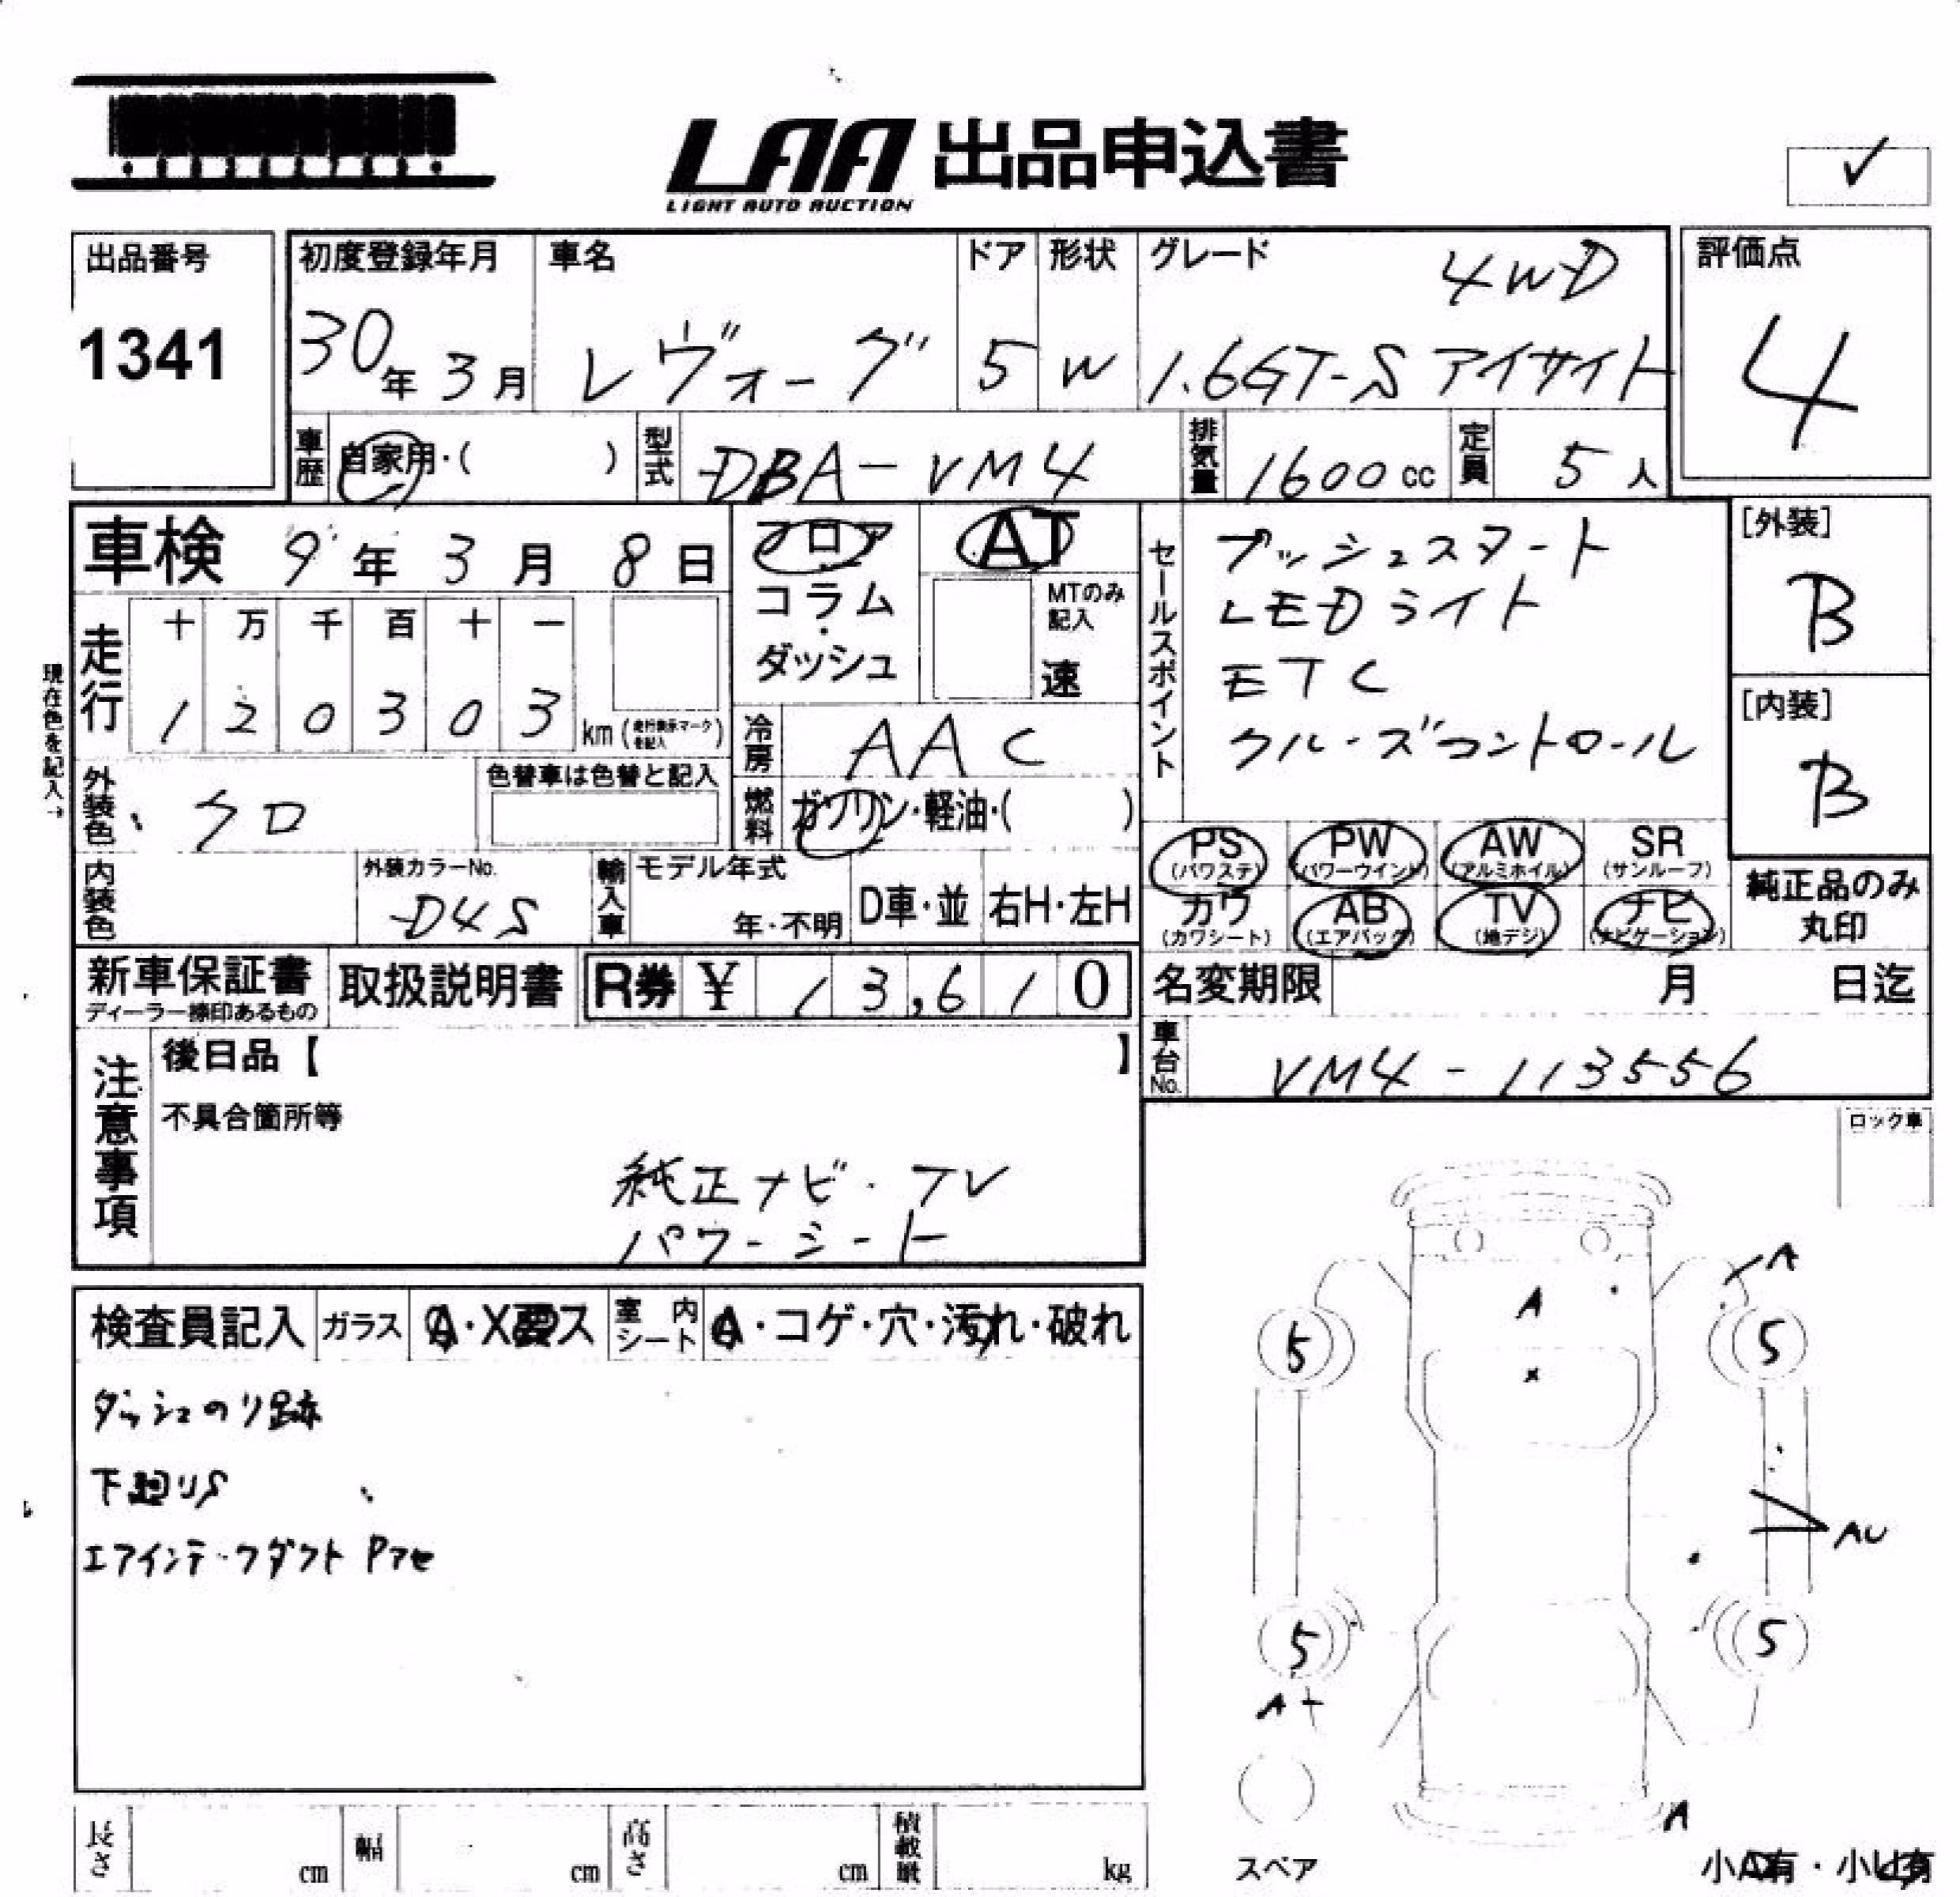 LAA 出品申込書
LIGHT AUTO AUCTION
✓
出品番号
1341
初度登録年月
30年 3月
車名
レヴォーグ
ドア
5
形状
W
グレード
4WD
1.6GT-S アイサイト
評価点
4
車歴
自家用・( )
型式
DBA-VM4
排気量
1600cc
定員
5人
車検 9年 3月 8日
フロア
コラム
・
ダッシュ
AT
MTのみ
記入
速
セールスポイント
プッシュスタート
LEDライト
ETC
クルーズコントロール
[外装]
B
[内装]
B
現在色を記入→
走行
十 万 千 百 十 一
1 2 0 3 0 3
km(走行表示マークを記入)
冷房
AAC
燃料
ガソリン・軽油・( )
外装色
クロ
色替車は色替と記入
内装色
外装カラーNo.
D4S
輸入車
モデル年式
年・不明
D車・並
右H・左H
PS
(パワステ)
PW
(パワーウインド)
AW
(アルミホイル)
SR
(サンルーフ)
カワ
(カワシート)
AB
(エアバッグ)
TV
(地デジ)
ナビ
(ナビゲーション)
純正品のみ
丸印
新車保証書
ディーラー捺印あるもの
取扱説明書
R券 ¥ 13,610
名変期限 月 日迄
車台No.
VM4-113556
注意事項
後日品【 】
不具合箇所等
純正ナビ・TV
パワーシート
ロック車
検査員記入
ガラス
A・X要ス
室内
シート
A・コゲ・穴・汚れ・破れ
ダッシュのリ跡
下廻りS
エアインテークダクト Pアセ
A
A
×
5
5
AU
5
5
A
A
スペア
小A有・小U有
長さ cm
幅 cm
高さ cm
積載量 kg